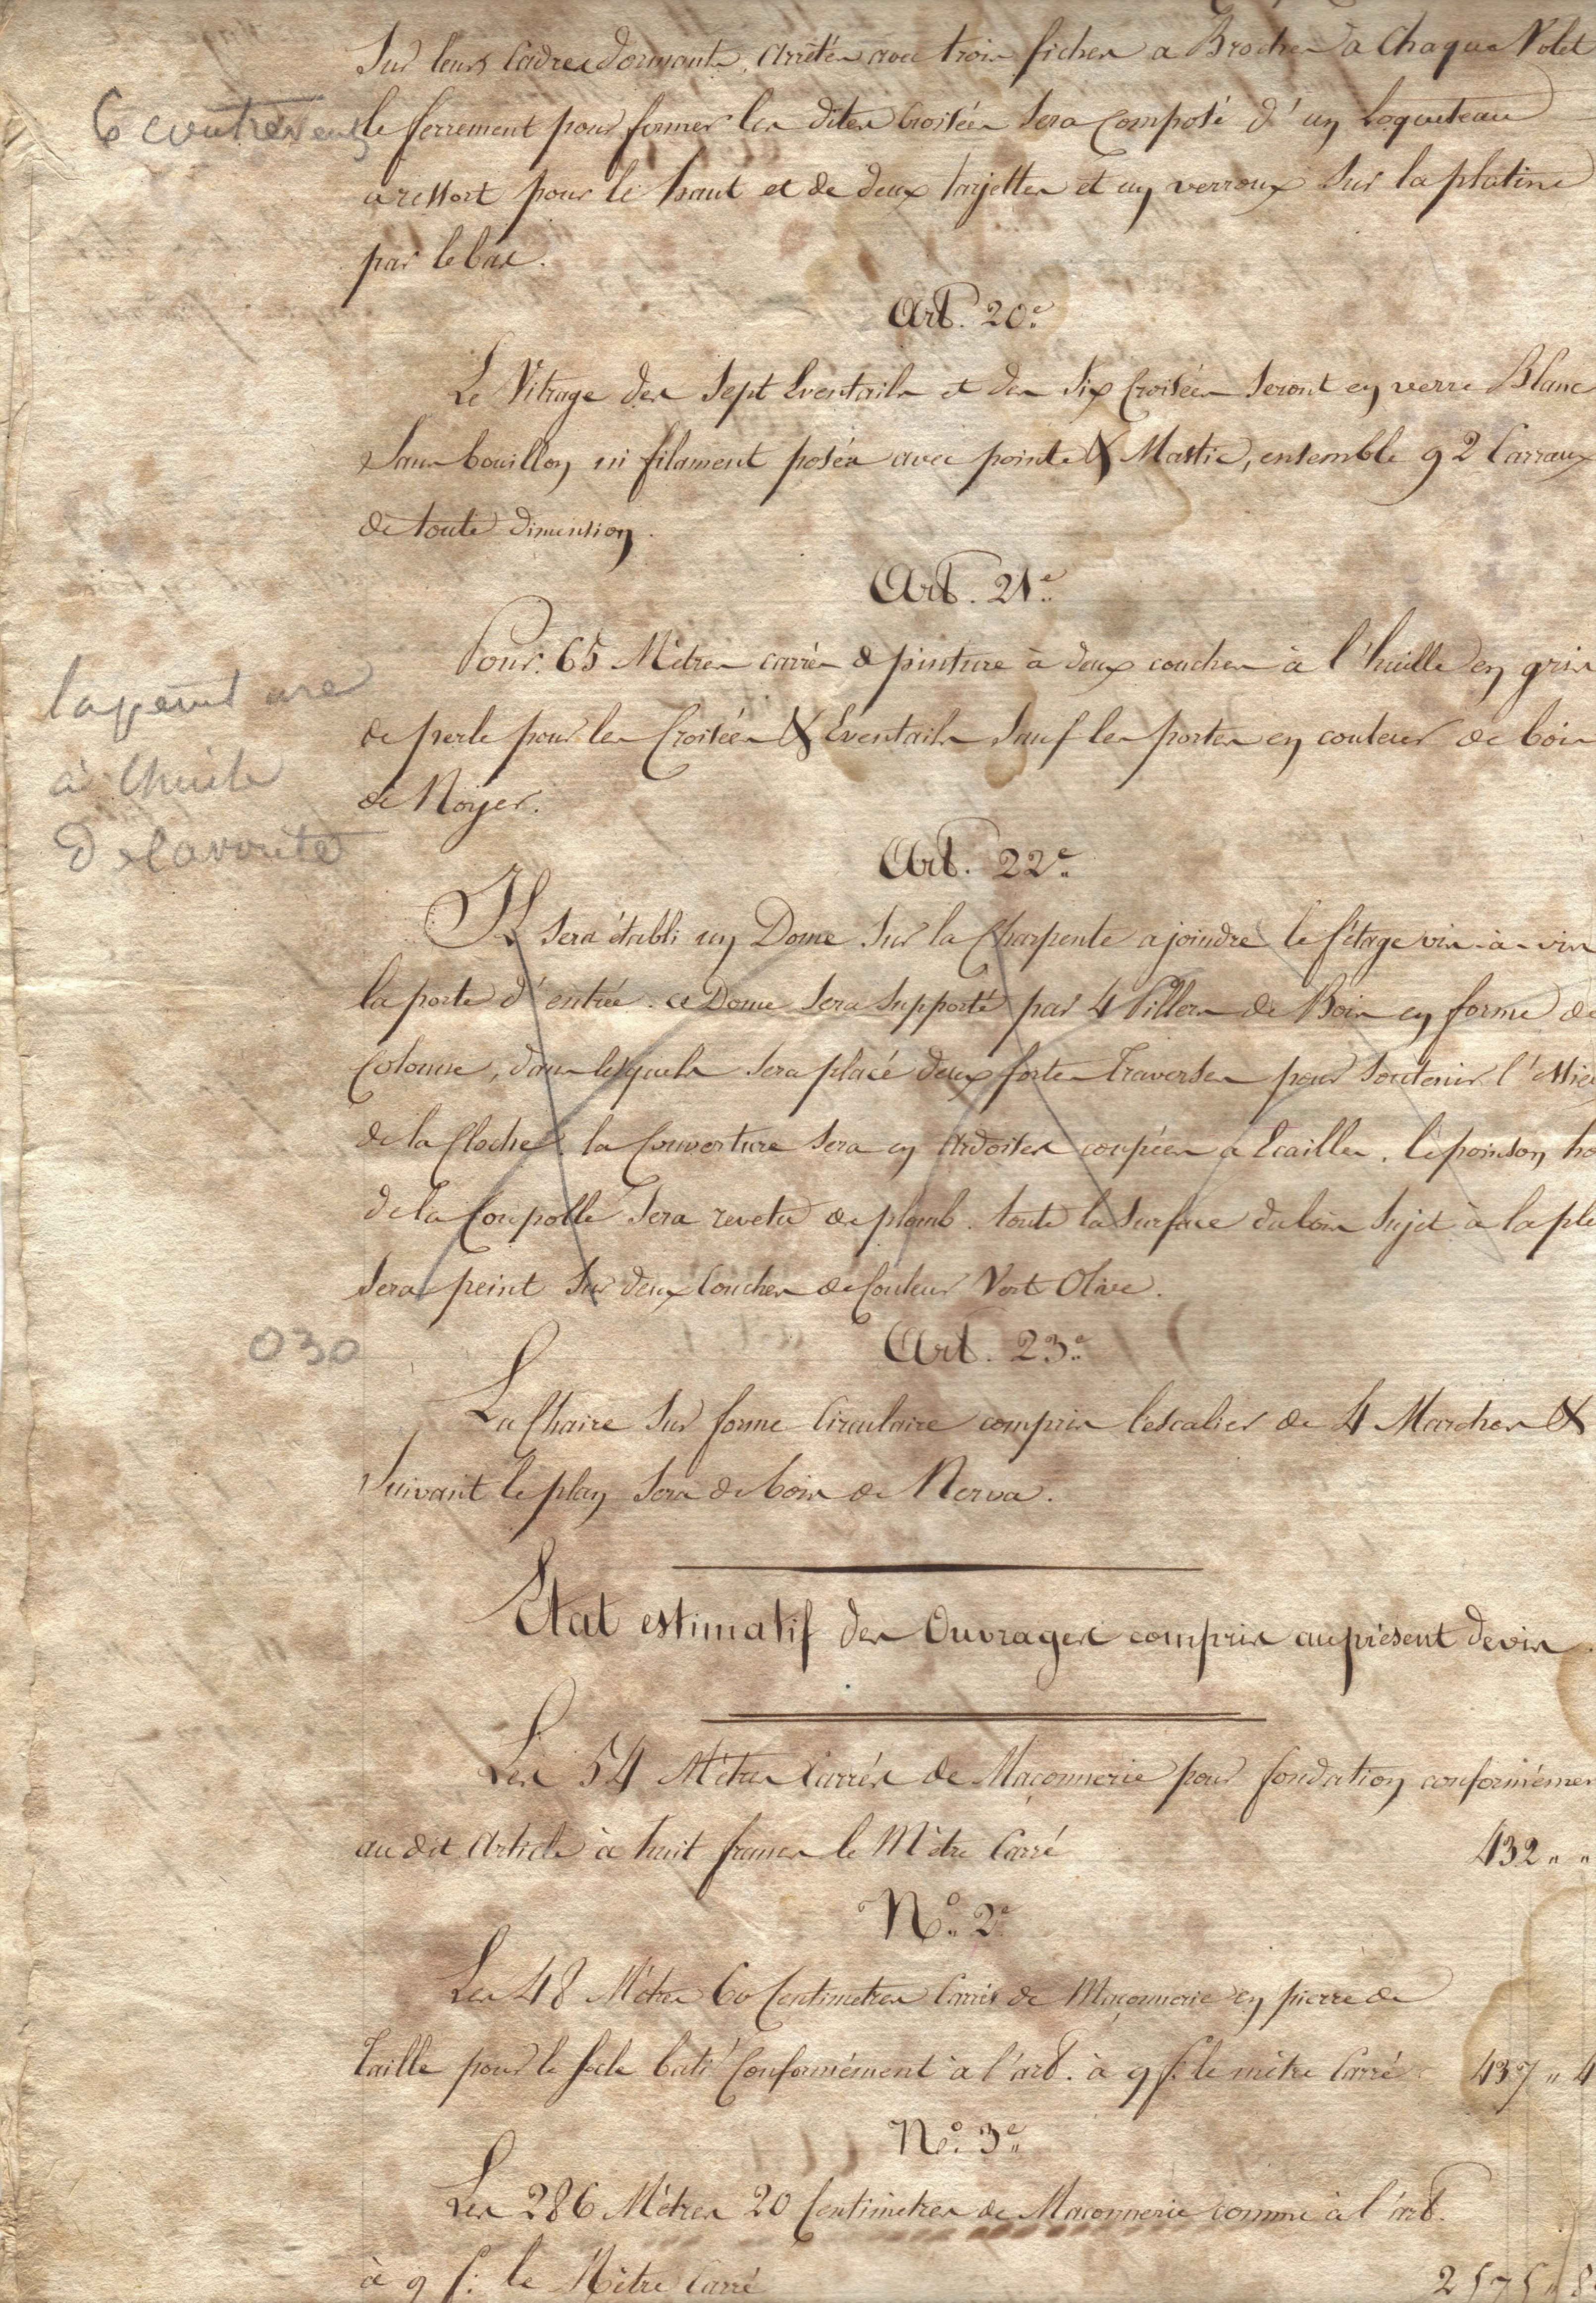 Sur leurs Cadres dormants, arrêtés avec trois fiches a Broches a Chaque Volet
6 contrevents
le ferrement pour fermer les dites Croisées sera composé d'un Loqueteau
a ressort pour le haut et de deux targettes et un verroux sur la platine
par le bas.
Art. 20e.
Le Vitrage des sept Eventails et des six Croisées seront en verre Blanc
Sans bouillon ni filament posés avec pointe & Mastic, ensemble 92 Carraux
de toute dimension.
Art. 21e.
Pour 65 Mètres carrés de peinture à deux couches à l'huille en gris
la peinture
de perle pour les Croisées & Eventails sauf les portes en couleur de bois
à lhuile
de Noyer.
de la voute
Art. 22e.
Il sera établi un Dome sur la Charpente a joindre le fêtage vis-à-vis
la porte d'entrée. ce Dome sera supporté par 4 Pilliers de Bois en forme de
Colonne, dans lesquels sera placé deux fortes traverses pour soutenir l'essieu
de la Cloche. la Couverture sera en Ardoises coupées a Ecailles. le poinson ho
de la Coupolle sera revetu de plomb. toute la surface du bois sujet à la plu
sera peint sur deux Couches de Couleur Vert Olive.
030
Art. 23e.
La Chaire sur forme Circulaire compris l'escalier de 4 Marches &
Suivant le plan sera de bois de Nerva.
Etat estimatif des Ouvrages compris au présent devis.
Les 54 Mètres Carrés de Maçonnerie pour fondation conformémen
au dit Article à huit francs le Mètre Carré 432 " "
No. 2e
Les 48 Mètres 60 Centimetres Carrés de Maçonnerie en pierre de
Taille pour le socle bati Conformément à l'art. à 9 f. le mètre Carré 437 " 4
No. 3e
Les 286 Mètres 20 Centimètres de Maconnerie comme à l'art.
à 9 f. le Mètre Carré 2575 " 8